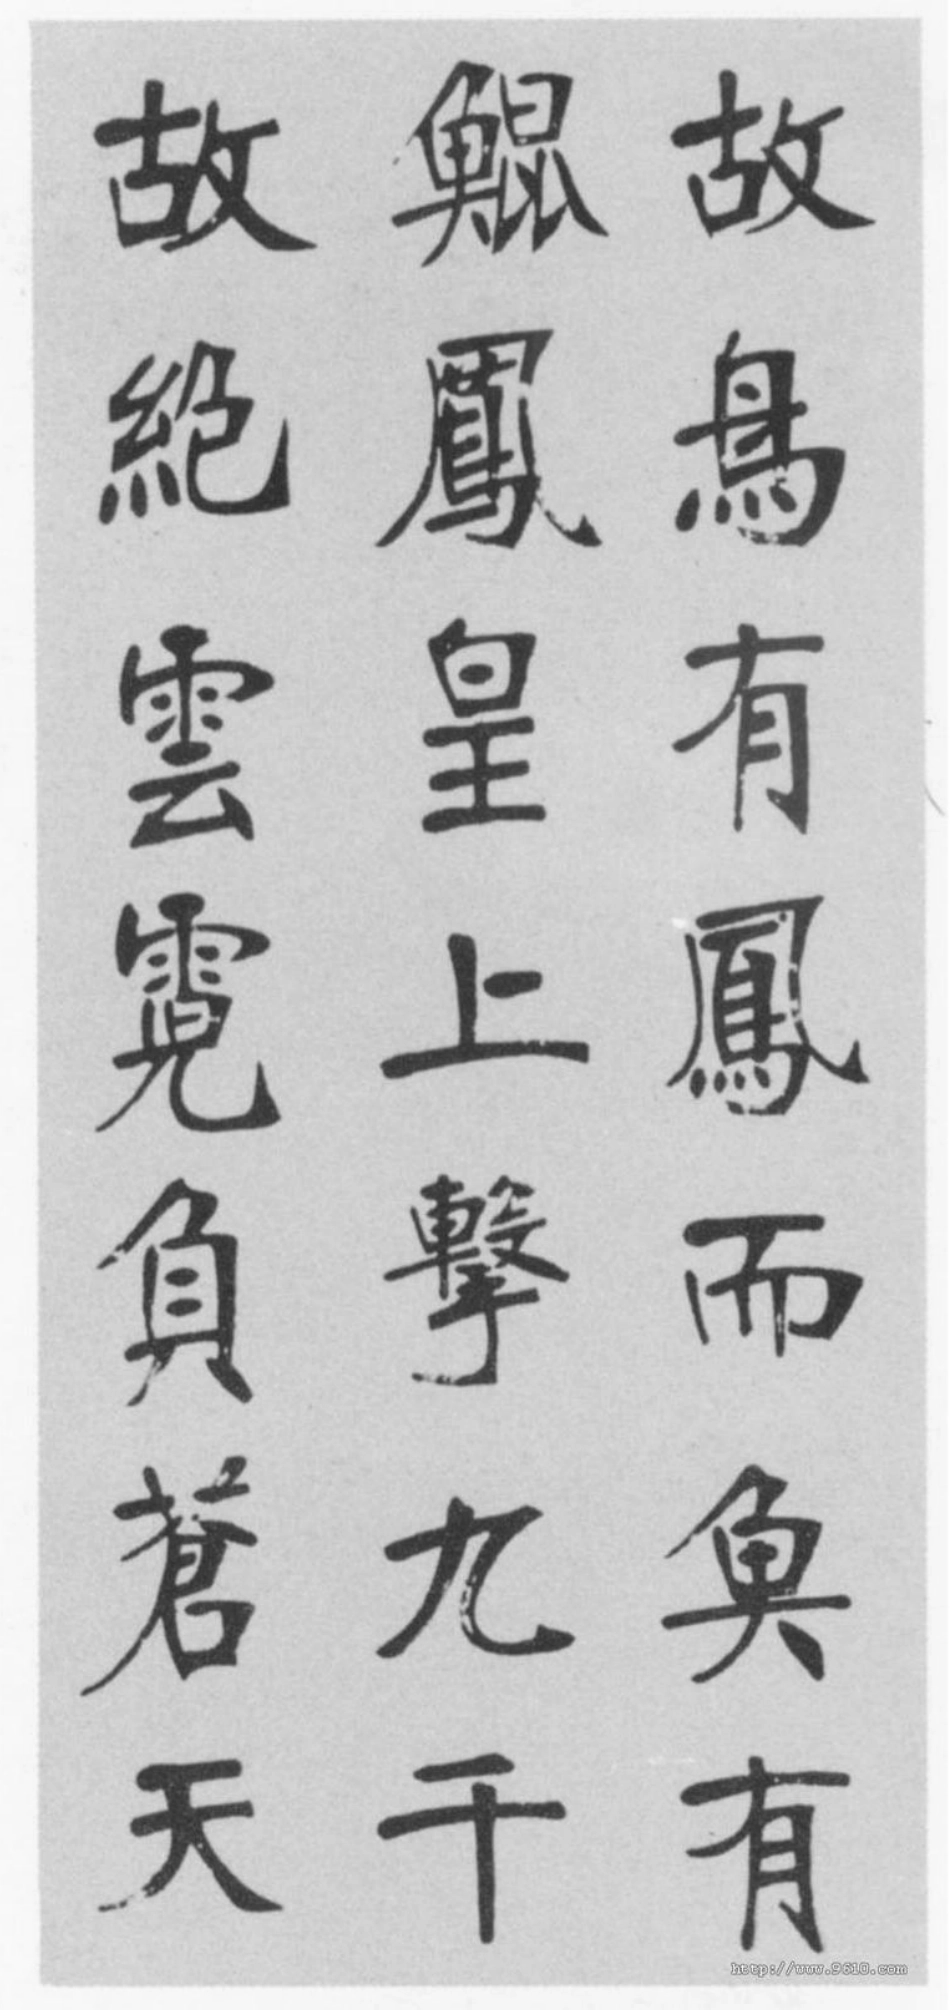 故鳥有鳳而魚有
鯤鳳皇上擊九千
故絕雲霓負蒼天
http://www.9610.com